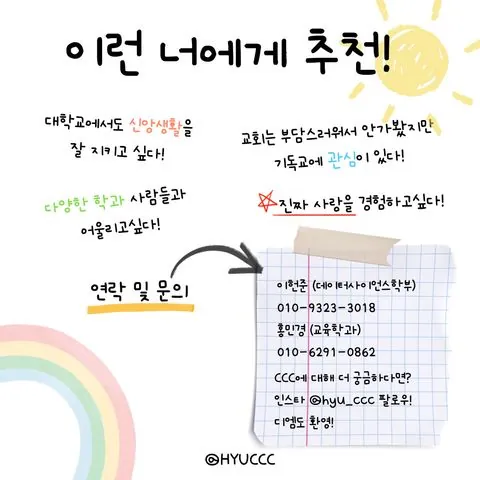 이런 너에게 추천!
대학교에서도 신앙생활을
잘 지키고 싶다!
교회는 부담스러워서 안가봤지만
기독교에 관심이 있다!
다양한 학과 사람들과
어울리고싶다!
진짜 사랑을 경험하고싶다!
연락 및 문의
이헌준 (데이터사이언스학부)
010-9323-3018
홍민경 (교육학과)
010-6291-0862
CCC에 대해 더 궁금하다면?
인스타 @hyu_ccc 팔로우!
디엠도 환영!
@HYUCCC